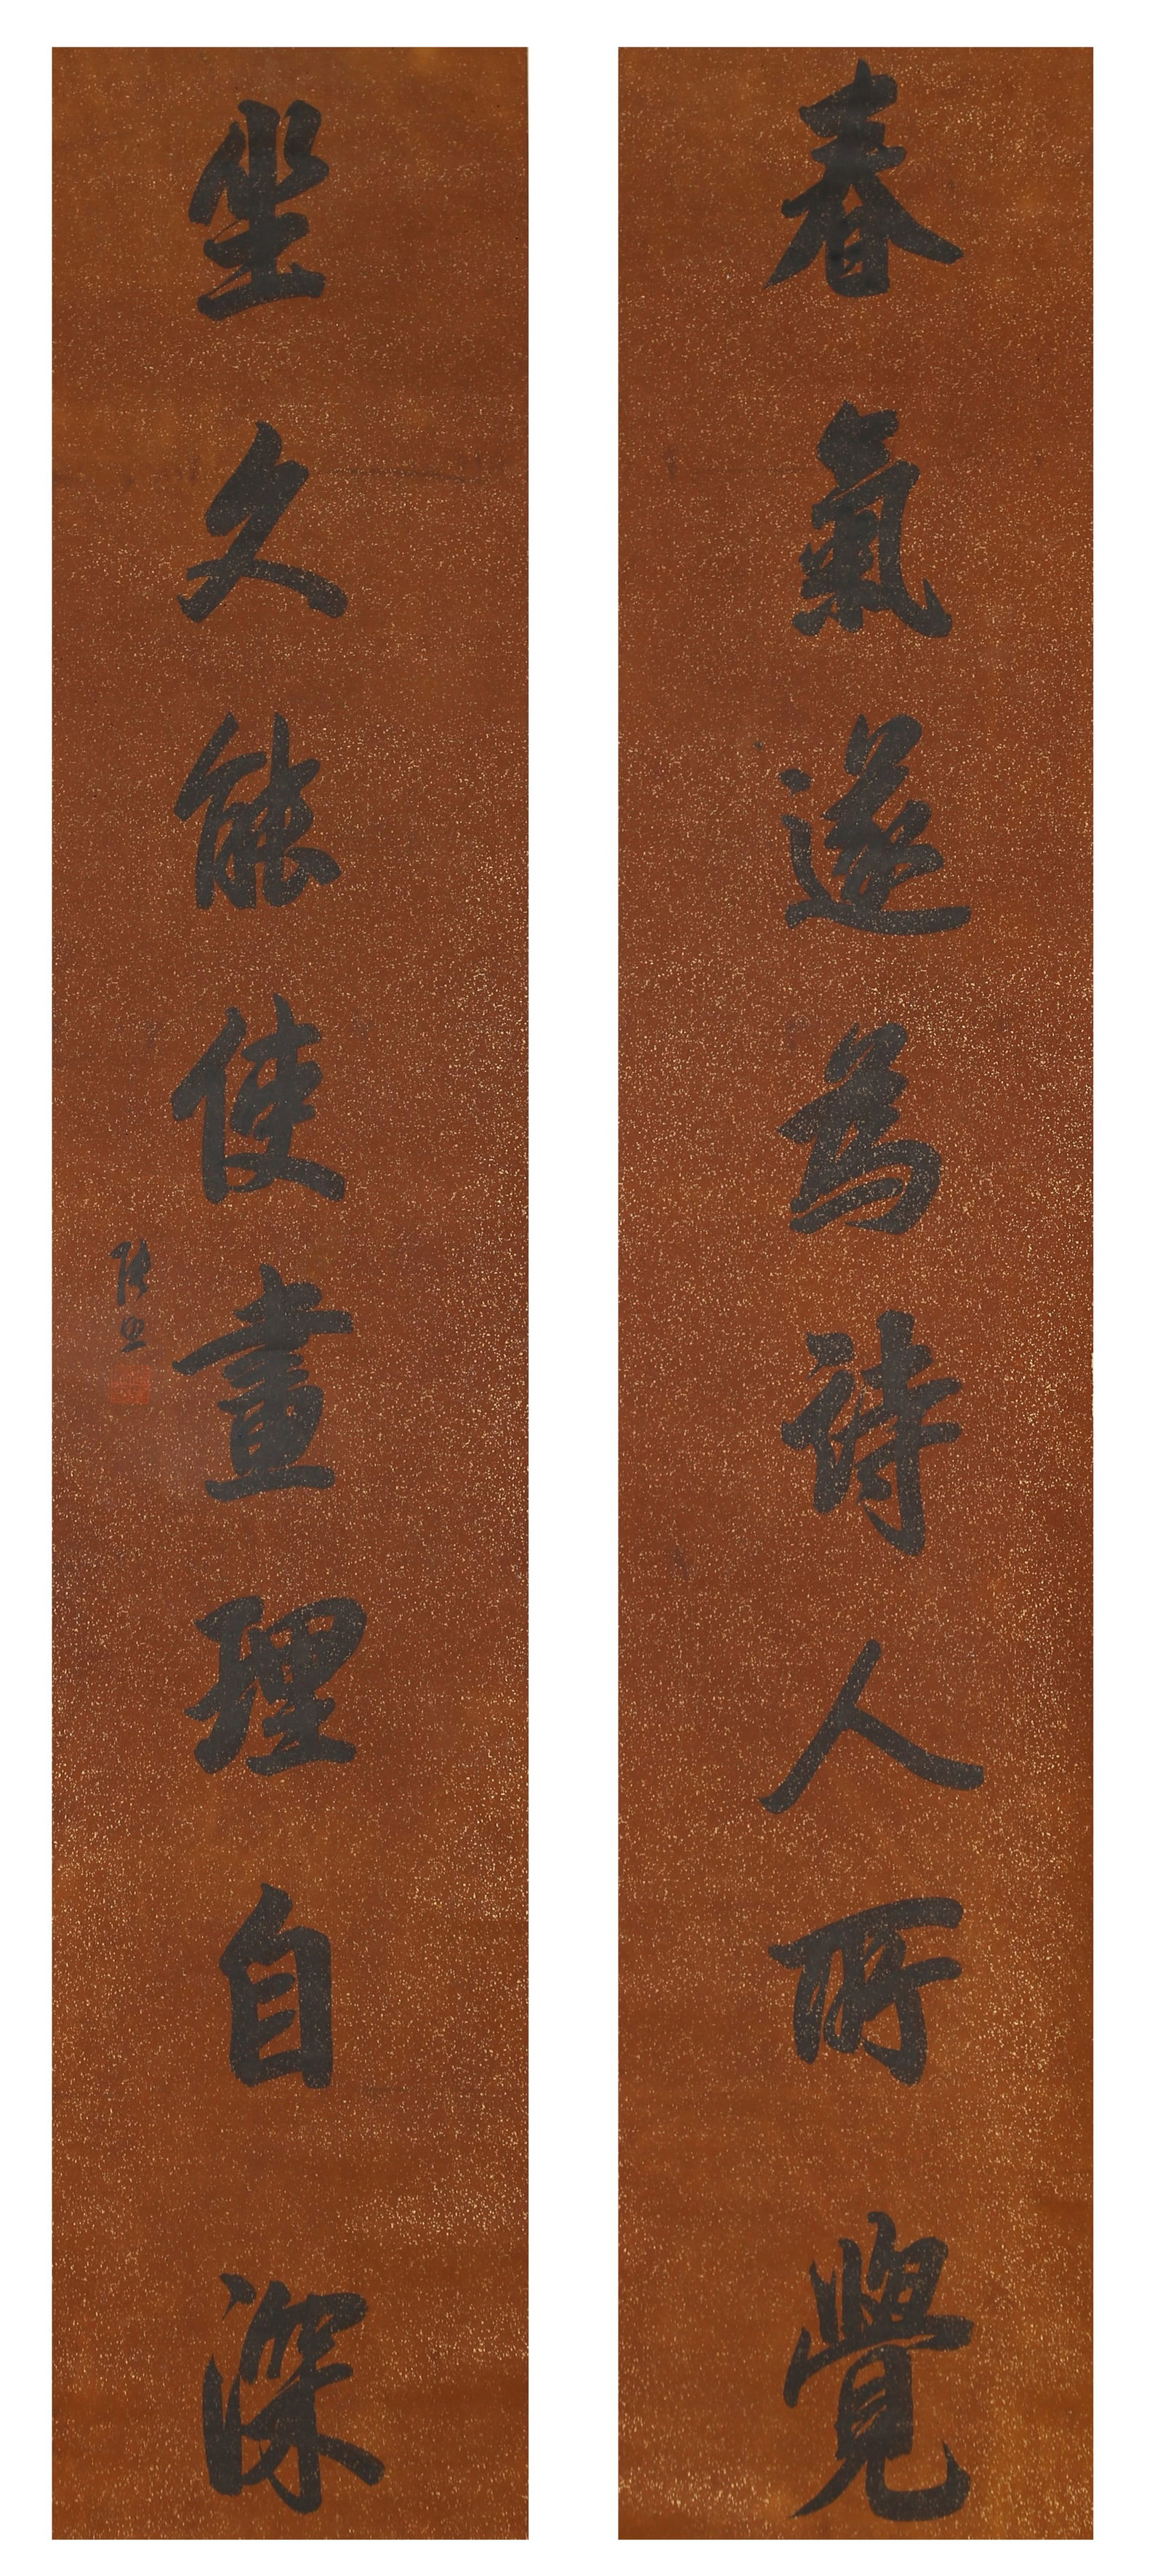 春氣遂為詩人所覺
坐久能使畫理自深